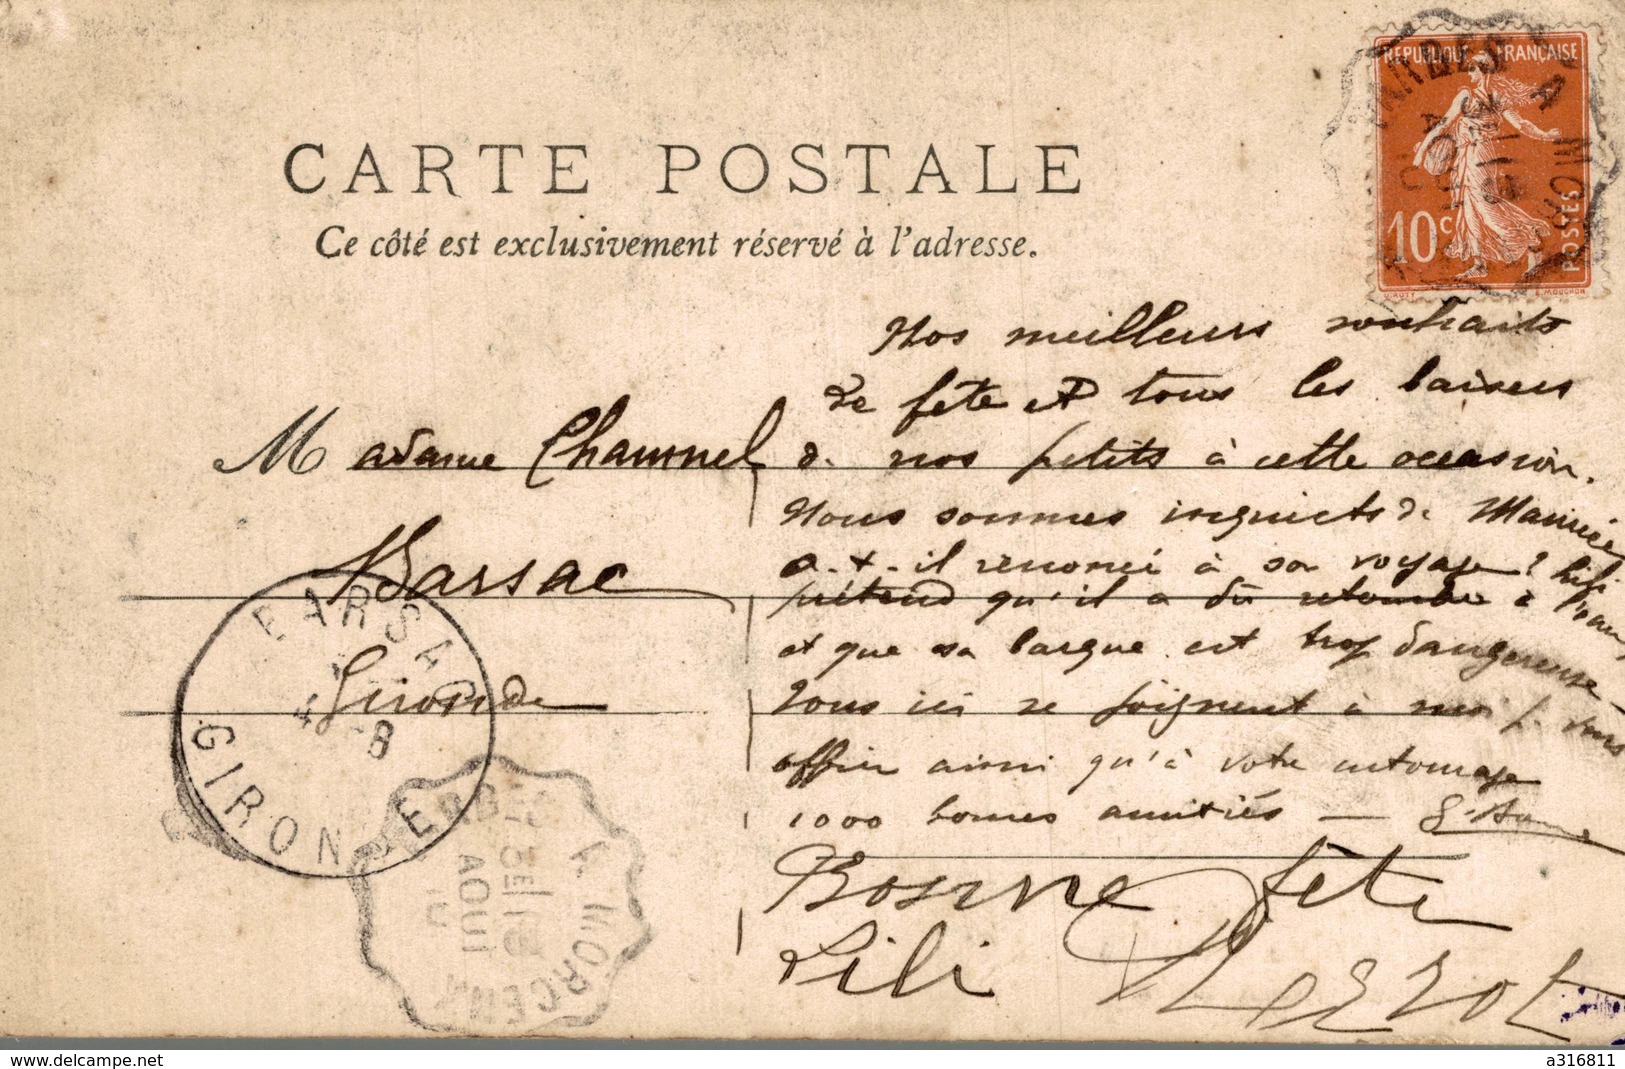 CARTE POSTALE
Ce côté est exclusivement réservé à l'adresse.
REPUBLIQUE FRANÇAISE
10c POSTES
O. ROTY E. MOUCHON
Madame Chaumel
Barsac
Gironde
BARSAC
4 8
GIRONDE
3E 10
AOUT
10
A MORCENX
Nos meilleurs souhaits
de fête et tous les baisers
de nos petits à cette occasion.
Nous sommes inquiets de Maurice
a-t-il renoncé à son voyage ? Lili
prétend qu'il a dû retomber à l'eau
et que sa barque est trop dangereuse
Tous ici se joignent à moi p. vous
offrir ainsi qu'à votre entourage
1000 bonnes amitiés —
Bonne fête
Lili
a316811